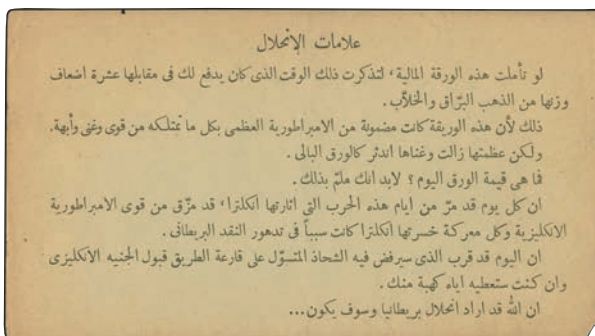 علامات الإنحلال
لو تأملت هذه الورقة المالية، لتذكرت ذلك الوقت الذى كان يدفع لك فى مقابلها عشرة اضعاف
وزنها من الذهب البرّاق والخلاّب .
ذلك لأن هذه الوريقة كانت مضمونة من الامبراطورية العظمى بكل ما تمتلكه من قوى وغنى وأبهة.
ولكن عظمتها زالت وغناها اندثر كالورق البالى .
فما هى قيمة الورق اليوم ؟ لابد انك ملمّ بذلك .
ان كل يوم قد مرّ من ايام هذه الحرب التى اثارتها انكلترا، قد مزّق من قوى الامبراطورية
الانكليزية وكل معركة خسرتها انكلترا كانت سبباً فى تدهور النقد البريطانى .
ان اليوم قد قرب الذى سيرفض فيه الشحاذ المتسوّل على قارعة الطريق قبول الجنيه الانكليزى
وان كنت ستعطيه اياه كهبة منك .
ان الله قد اراد انحلال بريطانيا وسوف يكون...